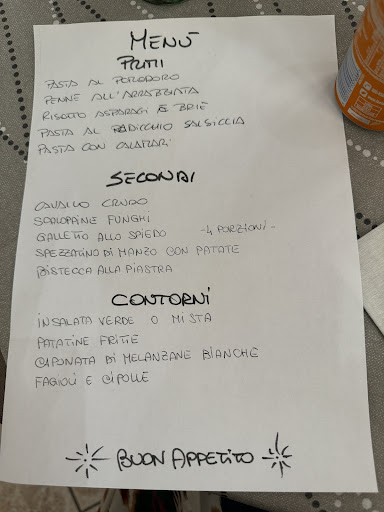 MENÙ
PRIMI
PASTA AL POMODORO
PENNE ALL'ARRABBIATA
RISOTTO ASPARAGI E BRIÈ
PASTA AL RADICCHIO SALSICCIA
PASTA CON CALAMARI
SECONDI
CAVALLO CRUDO
SCALOPPINE FUNGHI
GALLETTO ALLO SPIEDO -4 PORZIONI-
SPEZZATINO DI MANZO CON PATATE
BISTECCA ALLA PIASTRA
CONTORNI
INSALATA VERDE O MISTA
PATATINE FRITTE
CAPONATA DI MELANZANE BIANCHE
FAGIOLI E CIPOLLE
BUON APPETITO